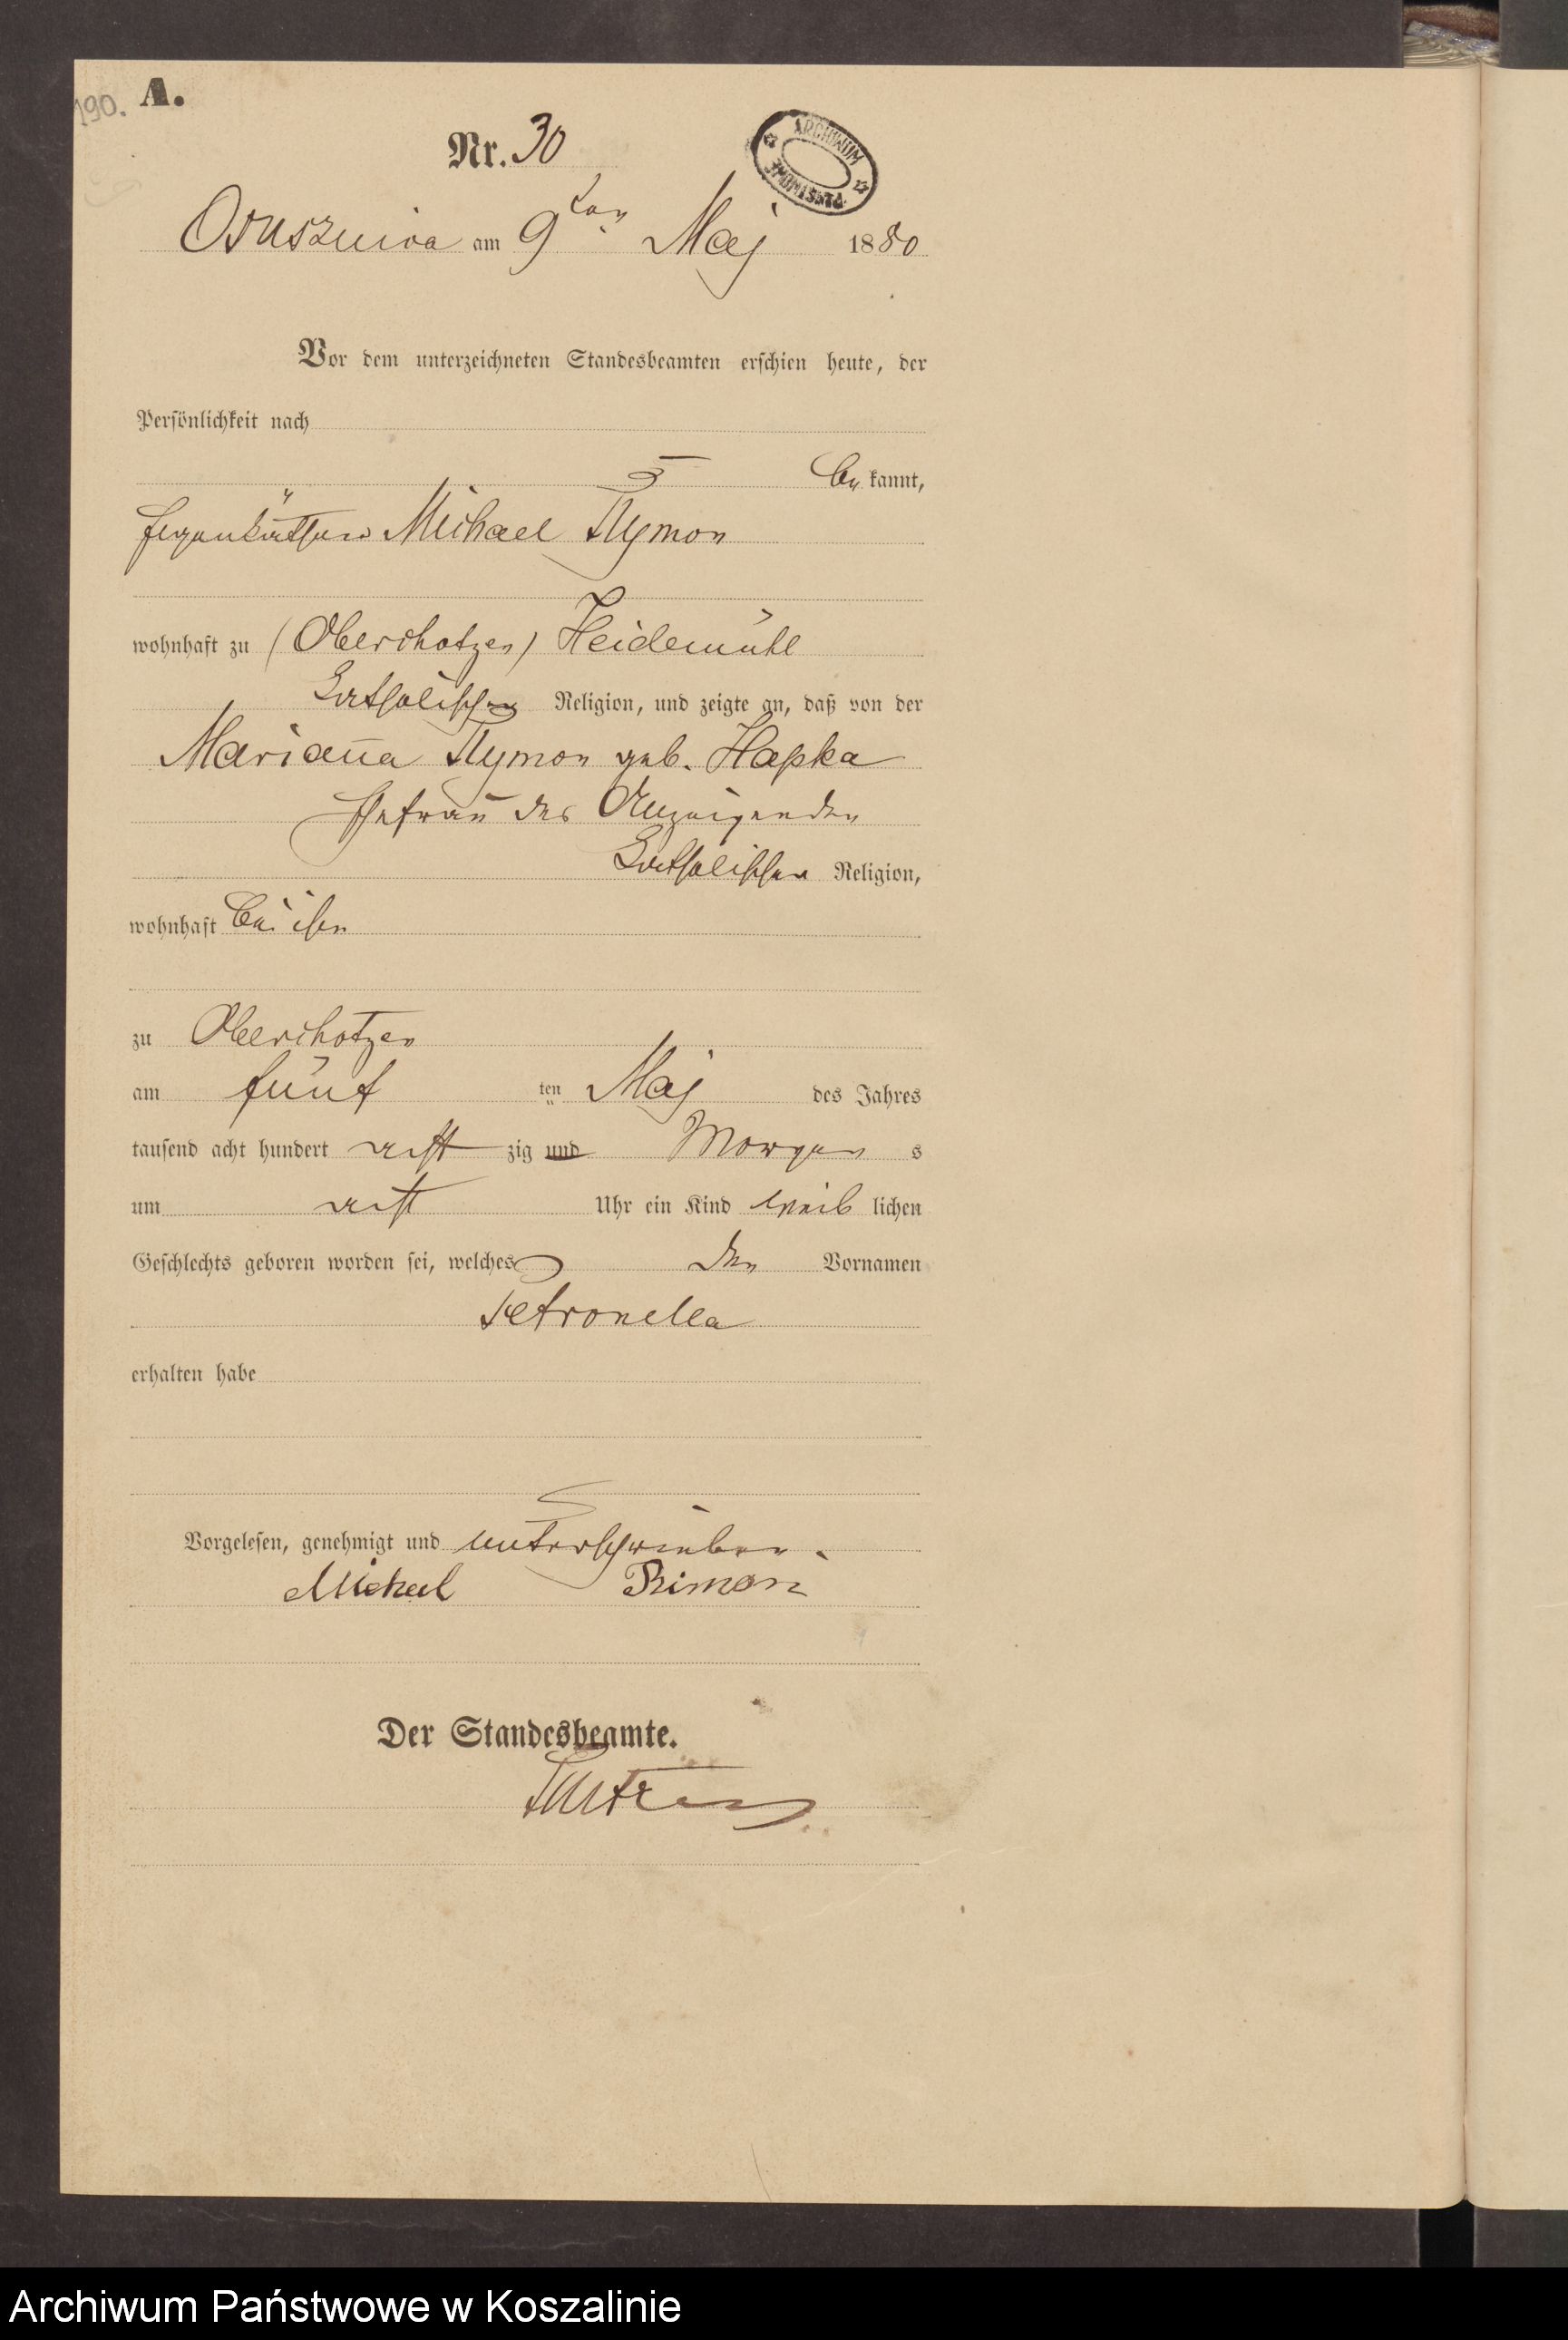 190. A.
Nr. 30
ARCHIWUM PAŃSTWOWE
Osusznica am 9ten Maj 1880
Vor dem unterzeichneten Standesbeamten erschien heute, der
Persönlichkeit nach
be kannt,
Eigenkäthner Michael Rymon
wohnhaft zu (Oberchotzen) Heidemühl
katholischer Religion, und zeigte an, daß von der
Marianna Rymon geb. Hapka
Ehefrau des Anzeigenden
katholischer Religion,
wohnhaft bei ihm
zu Oberchotzen
am fünf ten Maj des Jahres
tausend acht hundert acht zig und Morgen s
um acht Uhr ein Kind weib lichen
Geschlechts geboren worden sei, welches den Vornamen
Petronella
erhalten habe
Vorgelesen, genehmigt und unterschrieben.
Michael Rimon
Der Standesbeamte.
Archiwum Państwowe w Koszalinie